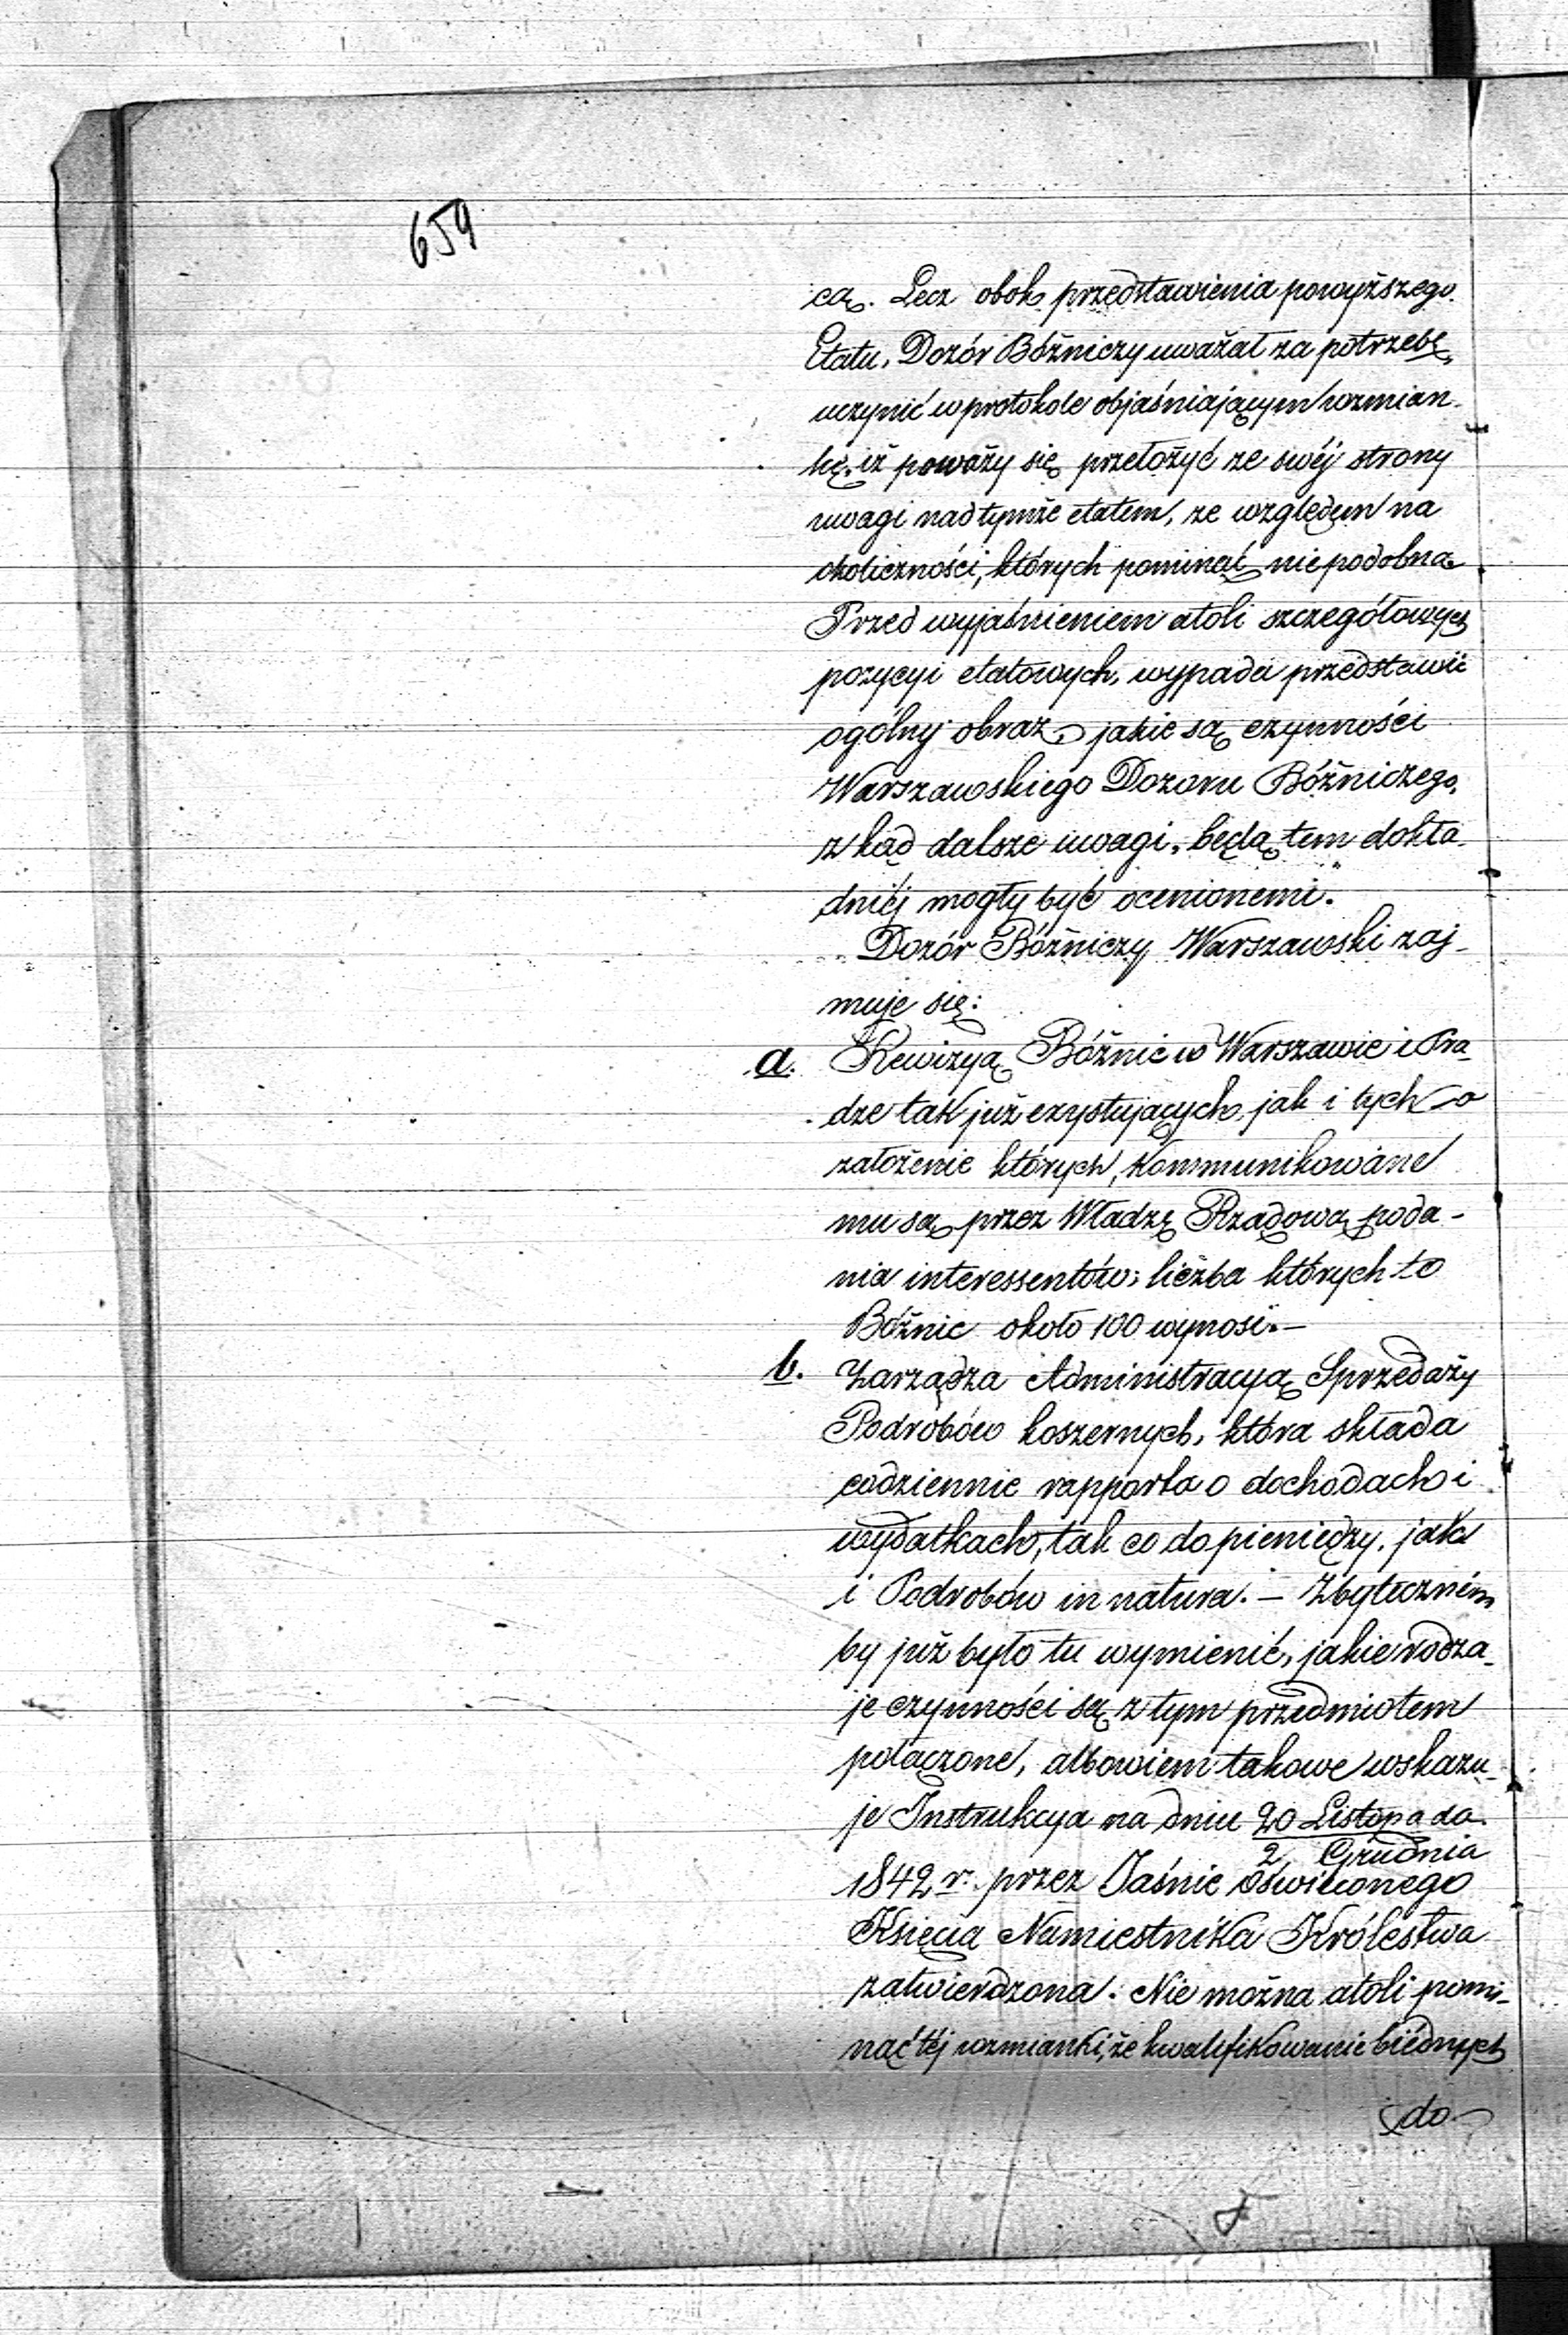 659
cą. Lecz obok przedstawienia powyższego
Etatu, Dozór Bóżniczy uważał za potrzebę,
uczynić w protokole objaśniającym wzmian-
kę, iż poważy się przełożyć ze swéj strony
uwagi nad tymże etatem, ze względem na
okoliczności, których pominąć niepodobna.
Przed wyjaśnieniem atoli szczegółowych
pozycyi etatowych, wypada przedstawić
ogólny obraz, jakie są czynności
Warszawskiego Dozoru Bóżniczego,
zkąd dalsze uwagi, będą tem dokła-
dniéj mogły być ocenionemi.
Dozór Bóżniczy Warszawski zaj-
muje się:
a. Rewizyą Bóżnic w Warszawie i Pra-
dze tak już exystujących, jak i tych o
założenie których, kommunikowane
mu są przez Władzę Rządową poda-
nia interessentów; liczba których to
Bóżnic około 100 wynosi.—
b. Zarządza Administracyą Sprzedaży
Podróbów koszernych, która składa
codziennie rapporta o dochodach i
wydatkach, tak co do pieniędzy, jak
i Podrobów in natura. — Zbyteczném
by już było tu wymienić, jakie rodza-
je czynności są z tym przedmiotem
połączone, albowiem takowe wskazu-
je Instrukcya na dniu 20 Listopada
2 Grudnia
1842 r. przez Jaśnie oświeconego
Księcia Namiestnika Królestwa
zatwierdzona. Nie można atoli pomi-
nąć téj wzmianki, że kwalifikowanie biédnych
do